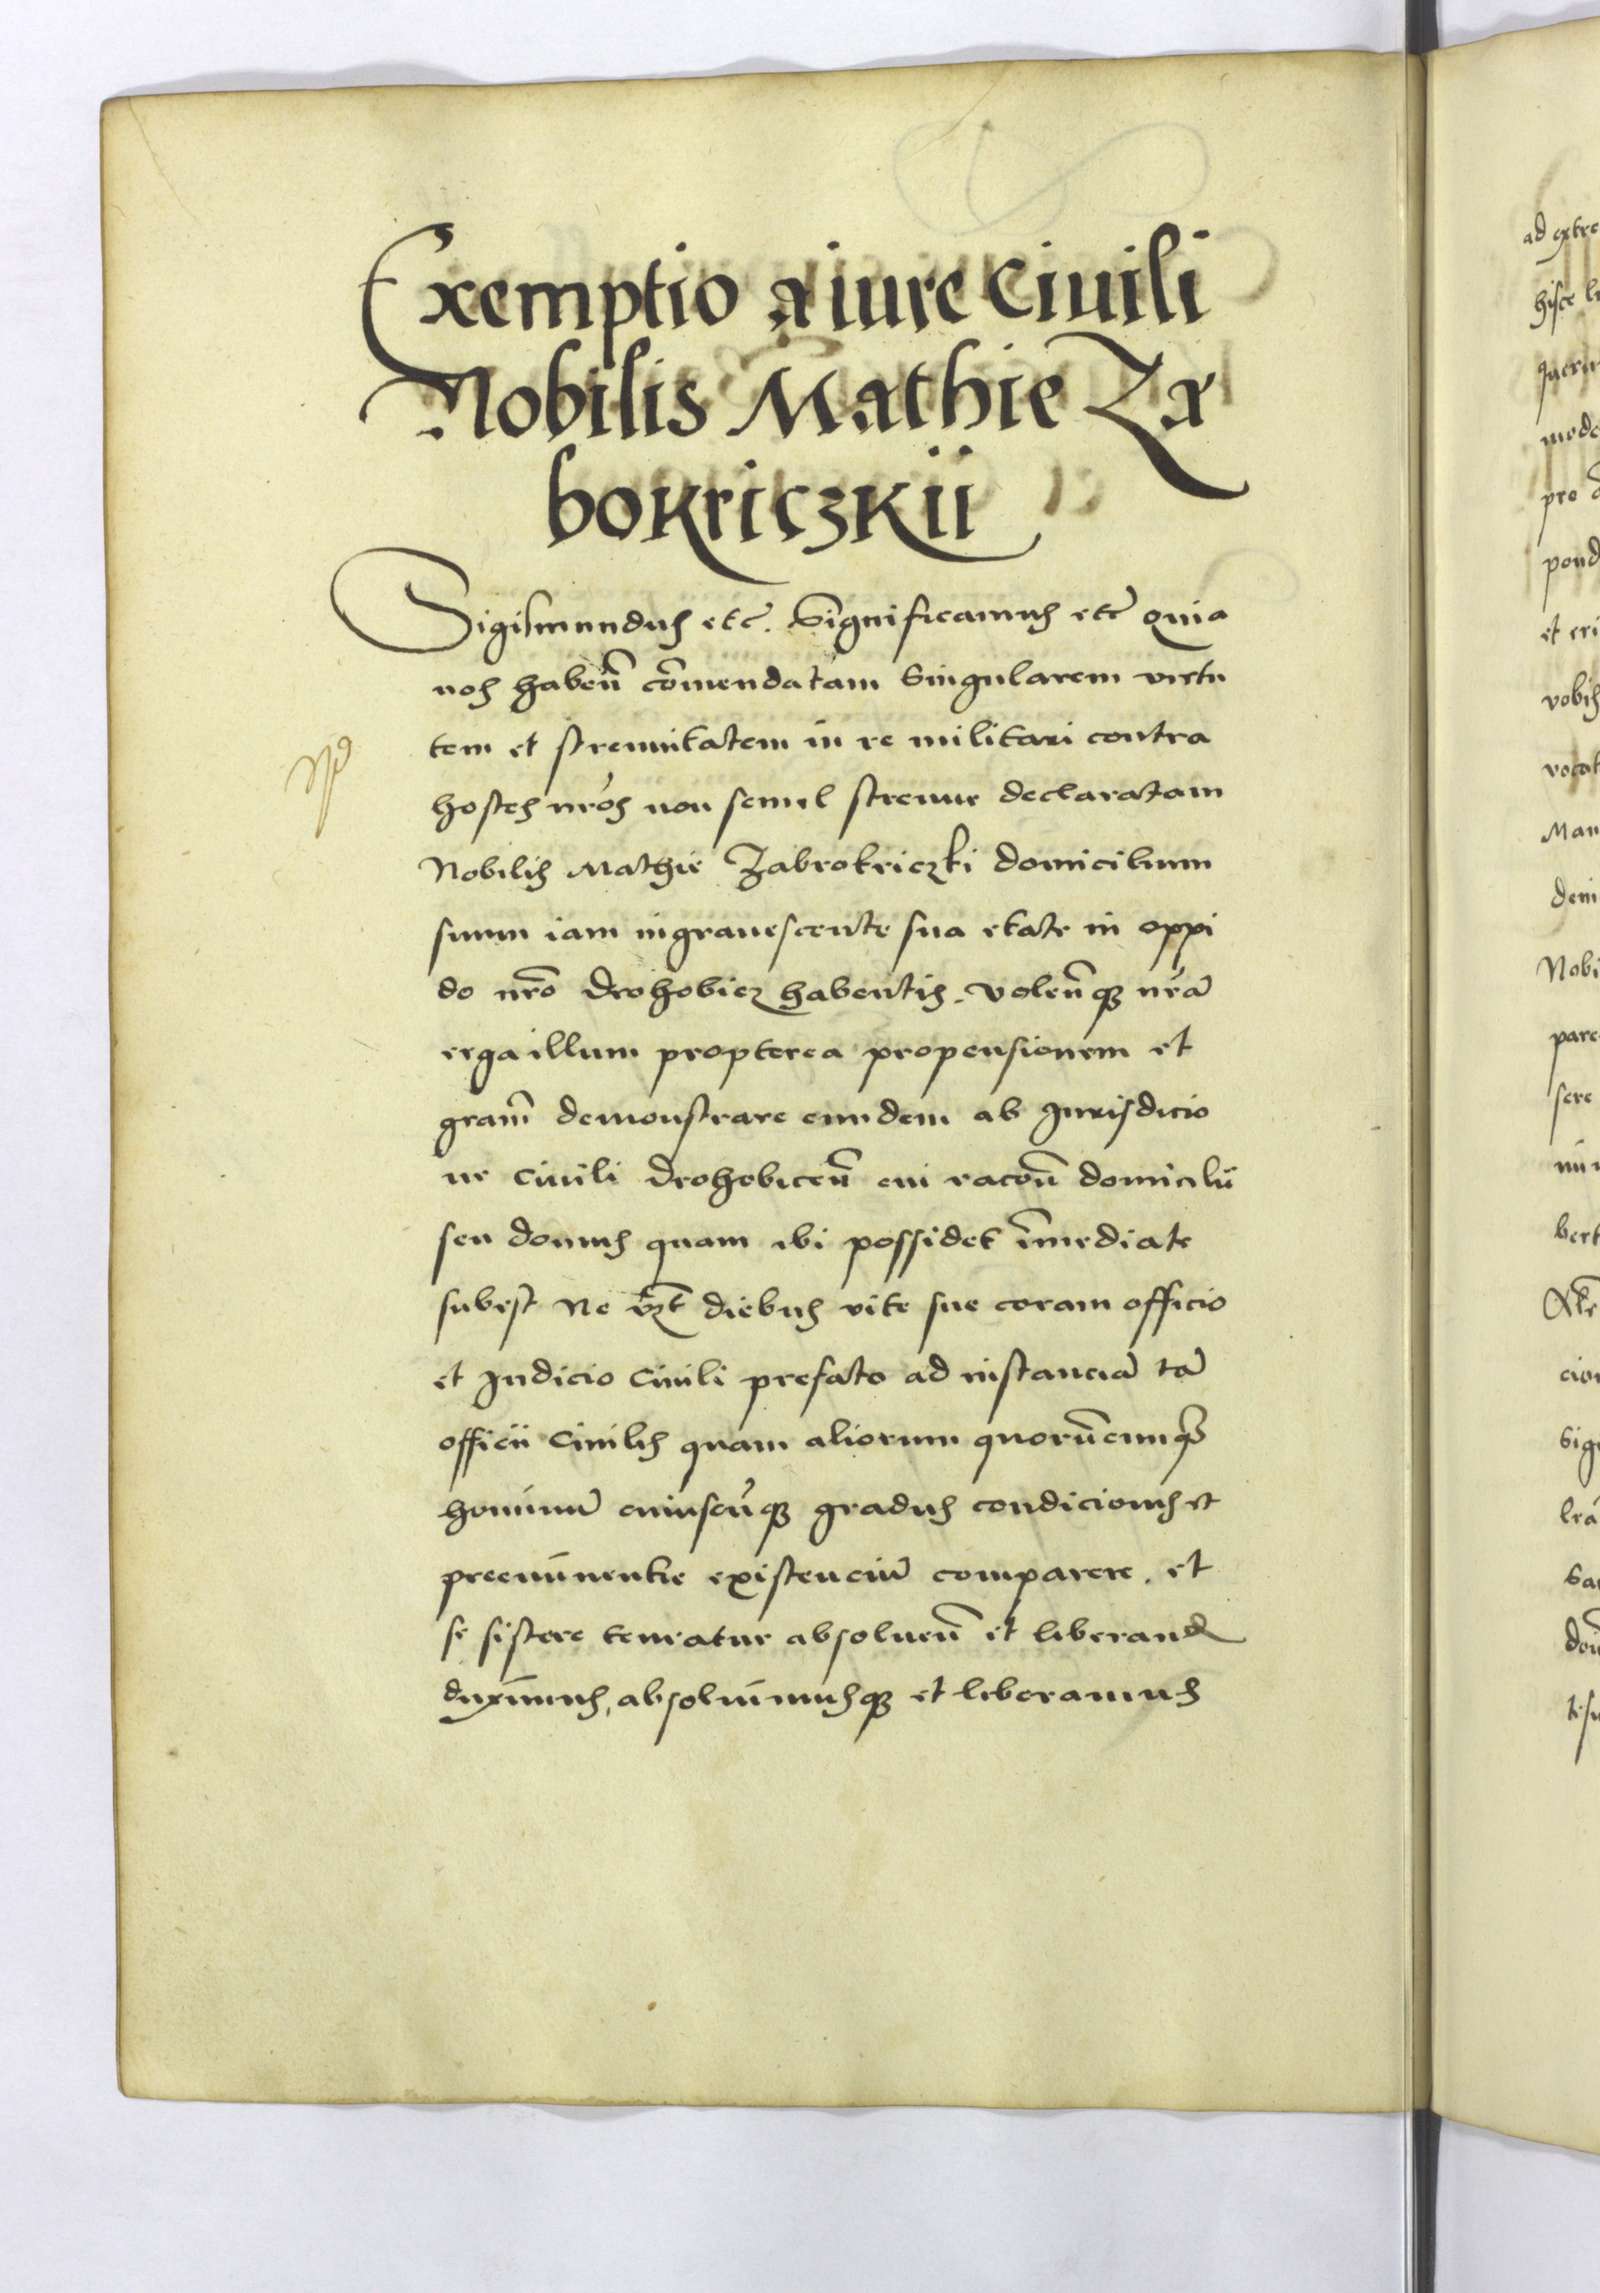 Exemptio a iure Ciuili
Nobilis Mathie Za
bokriczkii
Sigismundus etc. Significamus etc̃ Quia
nos habeñ com̃endatam singularem virtu
tem et strenuitatem in re militari contra
hostes nr̃os non semel strenue declaratam
Nobilis Mathie Zabrokriczki domicilium
suum iam ingrauescente sua etate in oppi
do nrõ Drohobicz habentis. Volentesq̃ nrãm
erga illum propterea propensionem et
gram̃ demonstrare eundem ab Jurisdicio
ne Ciuili Drohobiceñ cui racoñe domicilii
seu domus quam ibi possidet im̃ediate
subest Ne diebus vite sue coram officio
et Judicio Ciuili prefato ad instanciã tã
officii Ciuilis quam aliorum quorũcunq̃
hominũ cuiuscũq̃ gradus condicionis et
preeminentie existenciũ comparere. et
se sistere teneatur absolueñ et liberand
duximus, absoluimusq̃ et liberamus
ad extre
hisce l
mode
pro
pond
et cri
vobis
vocat
Man
deni
Nobi
pare
sere
bert
cion
tisu